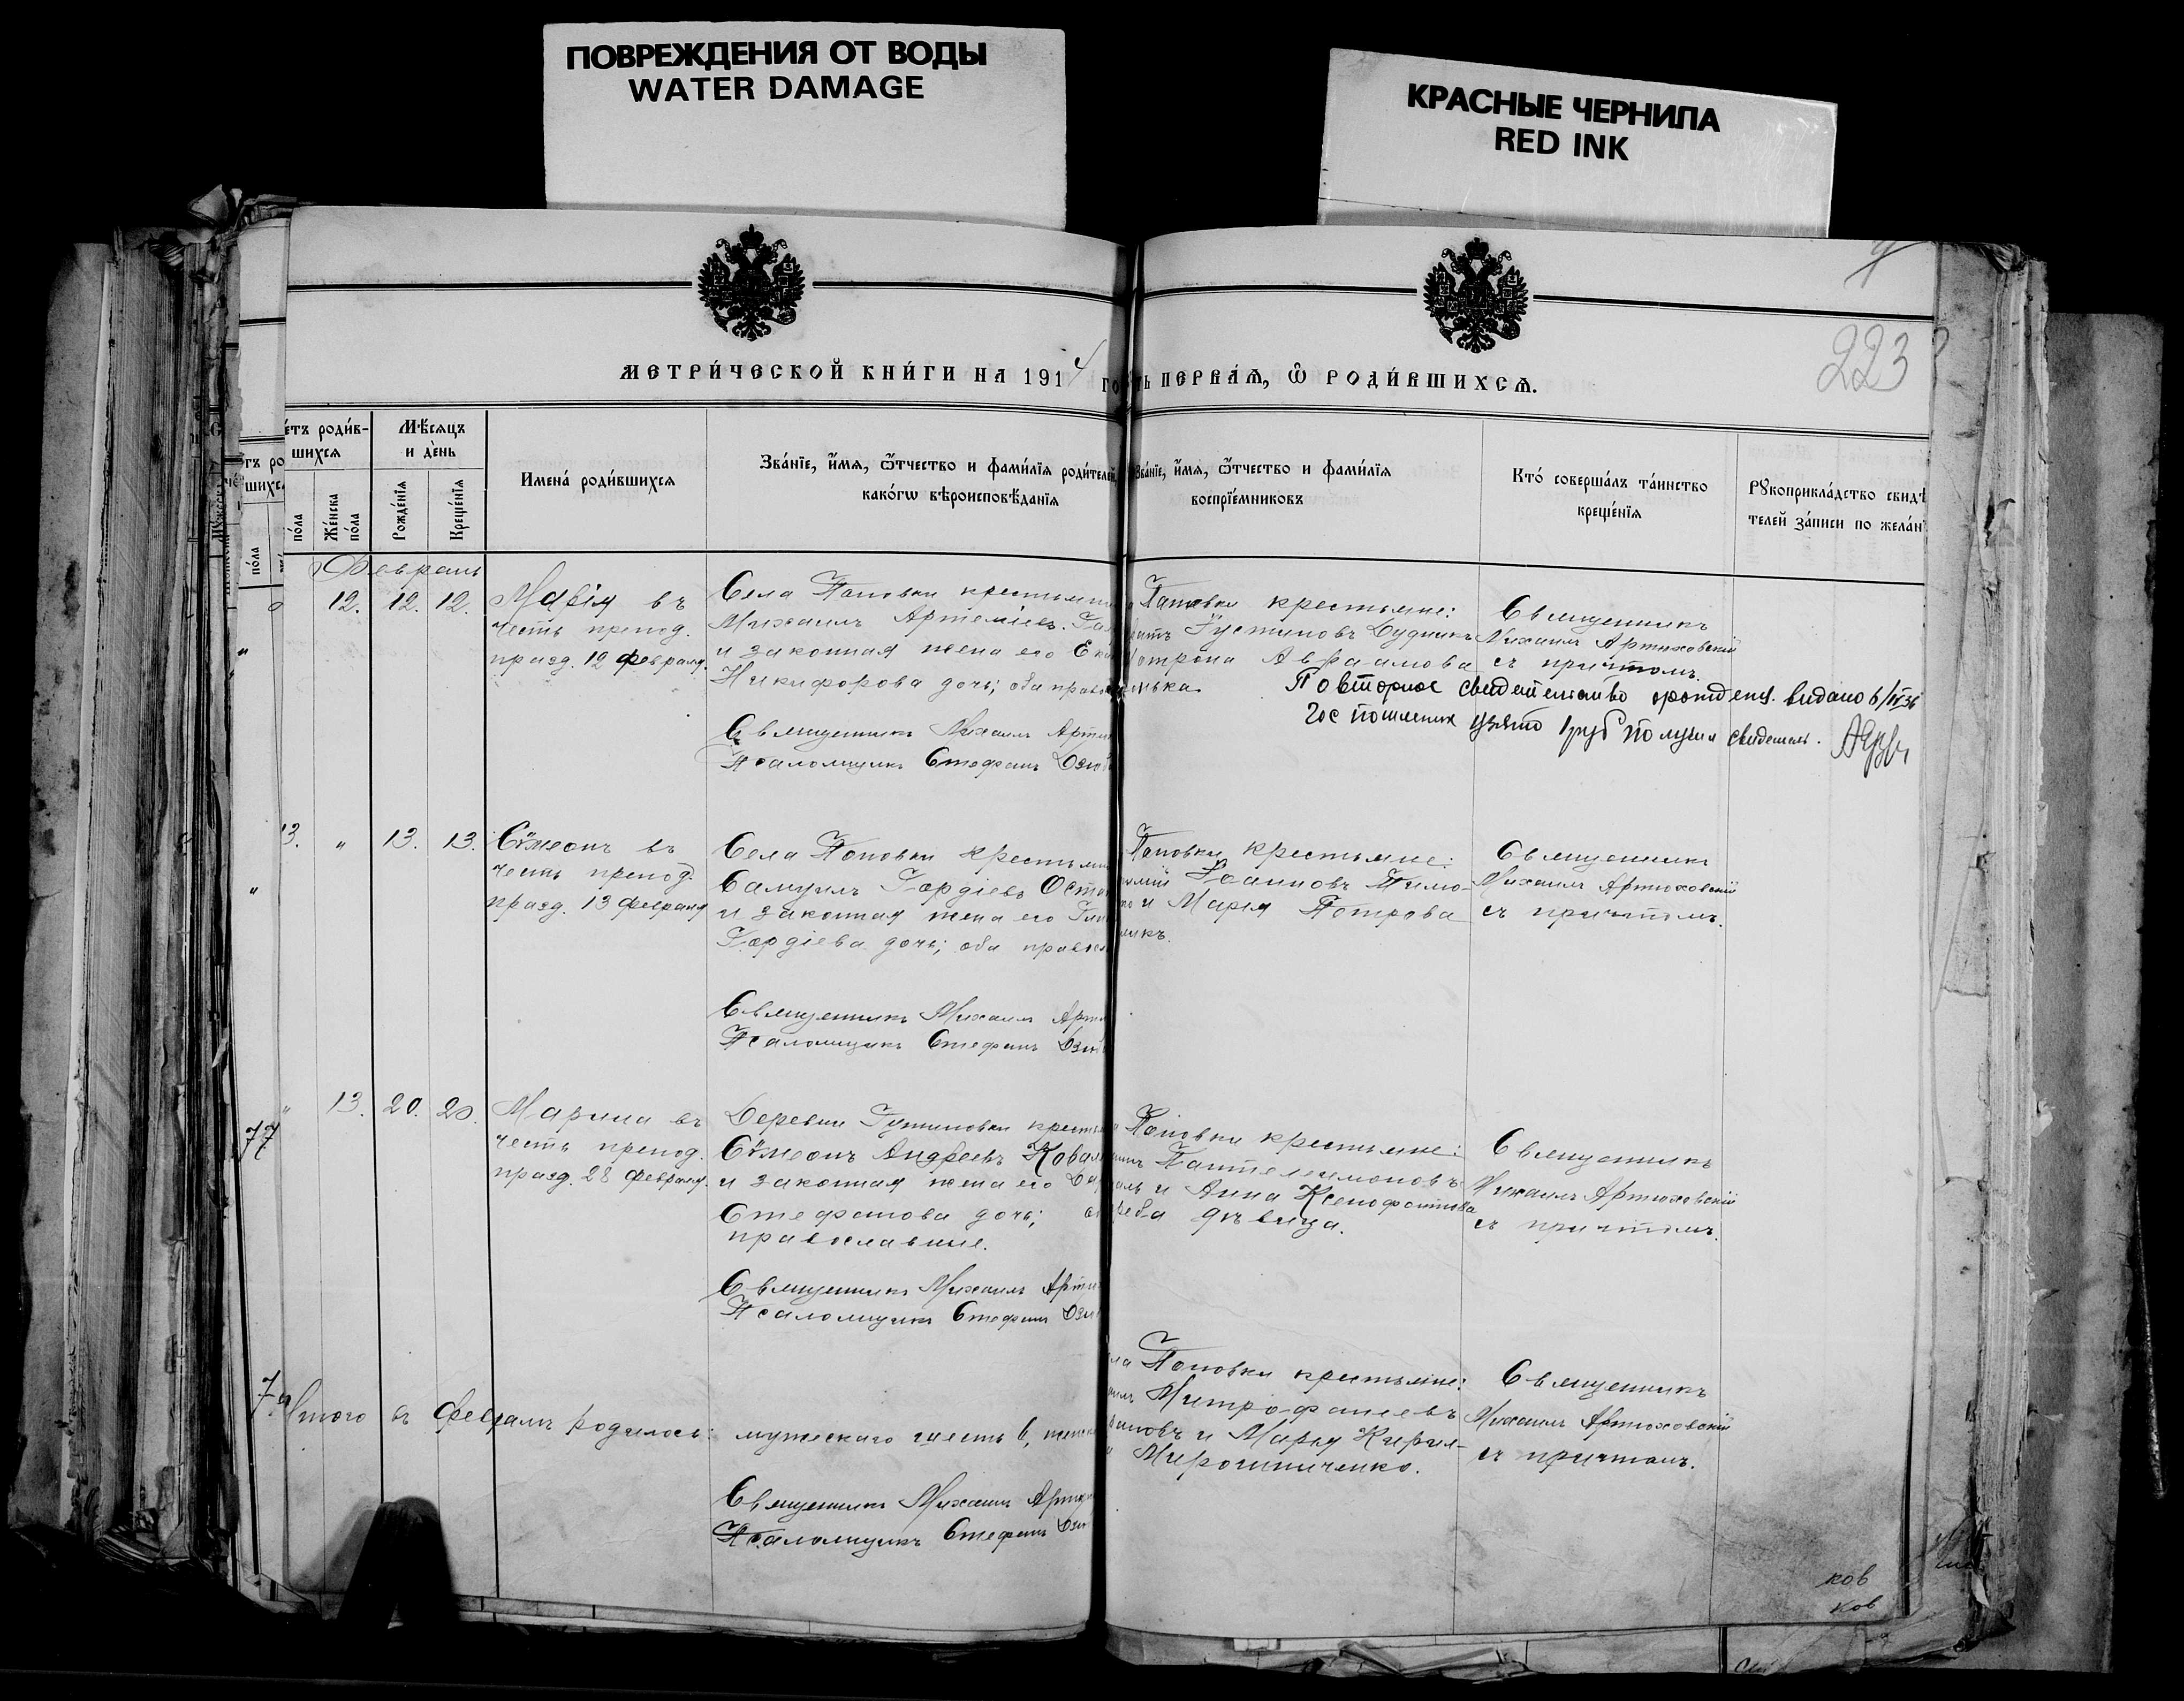 ПОВРЕЖДЕНИЯ ОТ ВОДЫ
WATER DAMAGE
КРАСНЫЕ ЧЕРНИЛА
RED INK
223
МЕТРИ́ЧЕСКОЙ КНИ́ГИ НА 1914 ГО
ТЬ ПЕРВА́Ѧ, Ѿ РОДИ́ВШИХСѦ.
е́тъ роди́в-
шихсѧ
по́ла
Же́нска по́ла
Мѣ́сѧцъ
и де́нь
Рожде́нїѧ
Креще́нїѧ
Имена́ роди́вшихсѧ
Зва́нїе, и҆́мѧ, ѻ҆́тчество и фами́лїѧ роди́телей,
како́гѡ вѣроисповѣ́данїѧ
Зва́нїе, и҆́мѧ, ѻ҆́тчество и фами́лїѧ
воспрїе́мниковъ
Кто́ соверша́лъ та́инство
креще́нїѧ
Рꙋкоприкла́дство свидѣ́
телей за́писи по жела́н
Февраль
12. 12. 12.
Марія въ
честь препод.
празд. 12 февраля.
Села Поповки крестьяни
Михаилъ Артеміев.
и законная жена его Ек
Никифорова дочь; оба право
Священникъ Михаилъ Артю
Псаломщикъ Стефанъ Дзюб
Поповки крестьяне:
Іустиновъ Дудникъ
Авраамова
нька.
Священникъ
Михаилъ Артюховскій
съ причтомъ.
Повторное свидетельство рожден. видано 6/IV 36
Гос пошлини узято 1 руб Получил свидетель.
13. " 13. 13.
Сѵмеонъ въ
честь препод.
празд. 13 февраля
Села Поповки крестьяни
Самуилъ Гордіевъ Оста
и законная жена его
Гордіева дочь; оба правосл
Священникъ Михаилъ Артю
Псаломщикъ Стефанъ Дзюб
Поповки крестьяне:
Іоанновъ Тимо-
и Марія Петрова
никъ.
Священникъ
Михаилъ Артюховскій
съ причтомъ.
" 13. 20. 20.
Марина въ
честь препод.
празд. 28 февраля.
Деревни Гутиновки кресть
Сѵмеонъ Андреевъ Ковал
и законная жена его Да
Стефанова дочь;
православные.
Священникъ Михаилъ Артю
Псаломщикъ Стефанъ Дзю
Поповки крестьяне:
Пантелеимоновъ
и Анна Ксенофонтова
дѣвица.
Священникъ
Михаилъ Артюховскій
съ причтомъ.
77
Итого въ Февралѣ родилось: мужескаго шесть 6, женск
Священникъ Михаилъ Артю
Псаломщикъ Стефанъ Дзю
ла Поповки крестьяне:
Митрофаневъ
и Марія Кирил-
Мирошниченко.
Священникъ
Михаилъ Артюховскій
съ причтомъ.
ков
ков